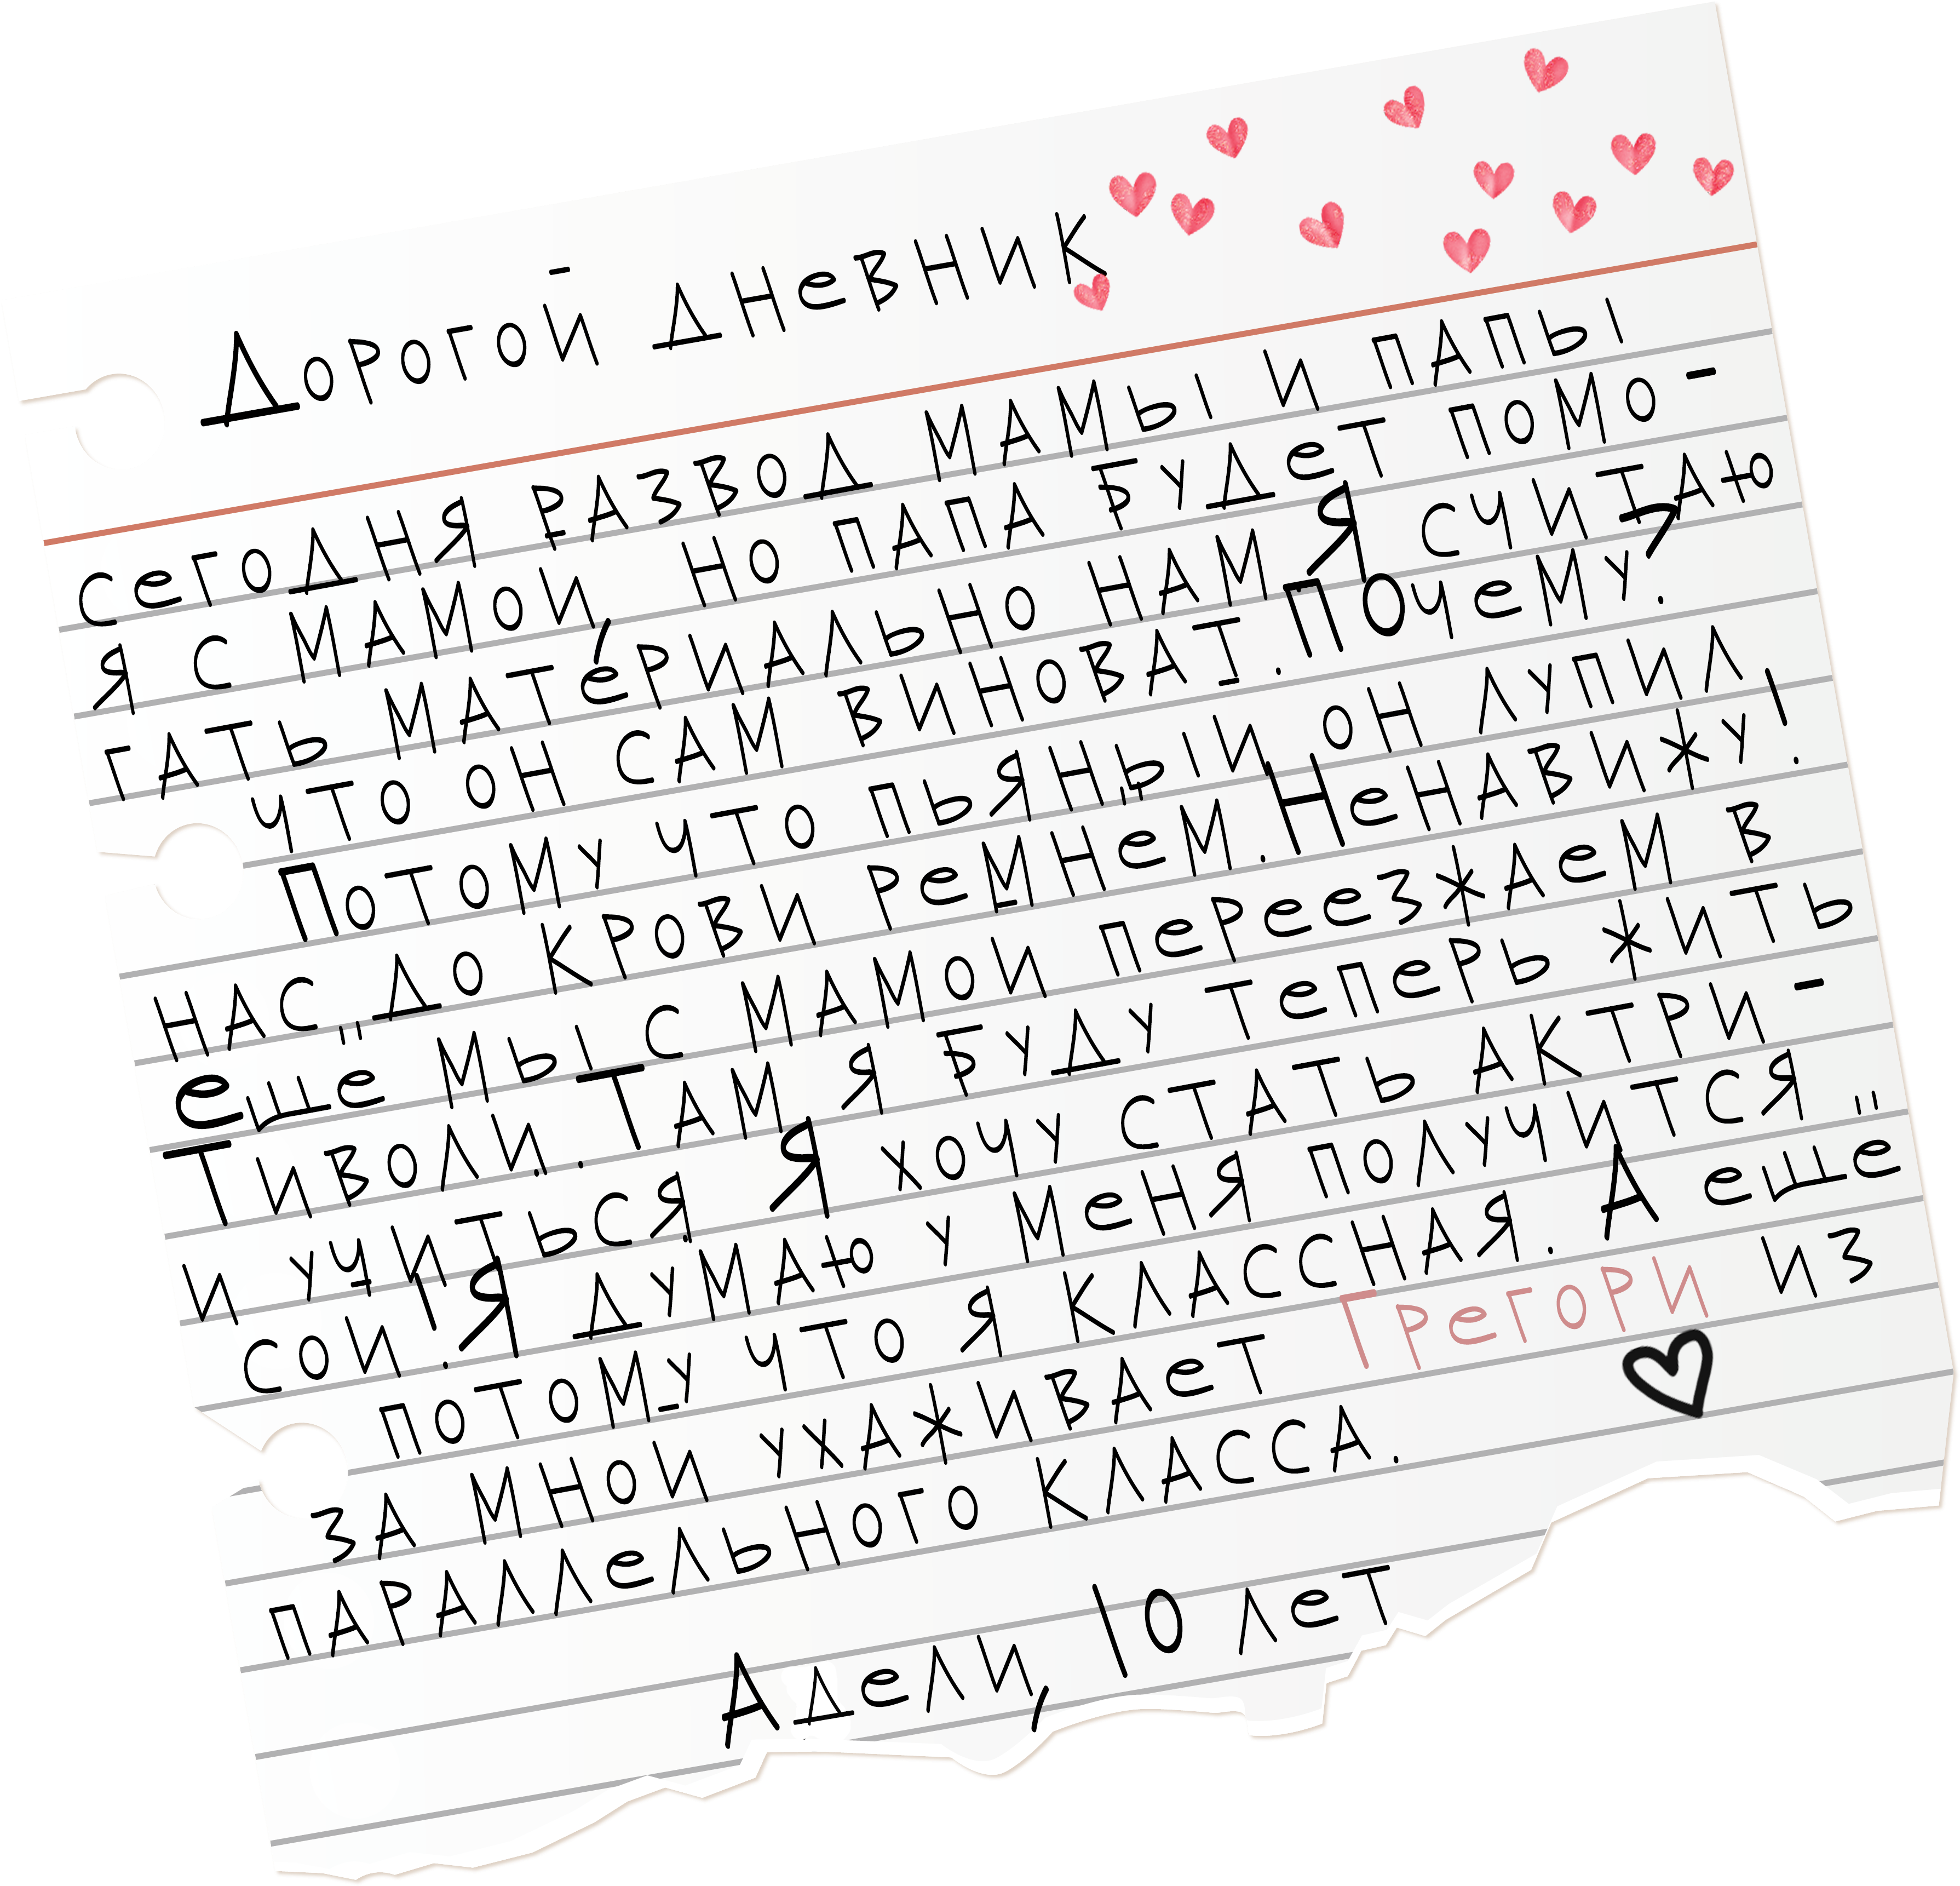 Дорогой дневник
сегодня развод мамы и папы
я с мамой, но папа будет помо-
гать материально нам. Я считаю
что он сам виноват. Почему?
Потому что пьяный он лупил
нас до крови ремнем. Ненавижу!
Ещё мы с мамой переезжаем в
Тиволи. Там я буду теперь жить
и учиться. Я хочу стать актри-
сой! Я думаю у меня получится
потому что я классная. А ещё
за мной ухаживает Грегори из
параллельного класса.
Адели, 10 лет